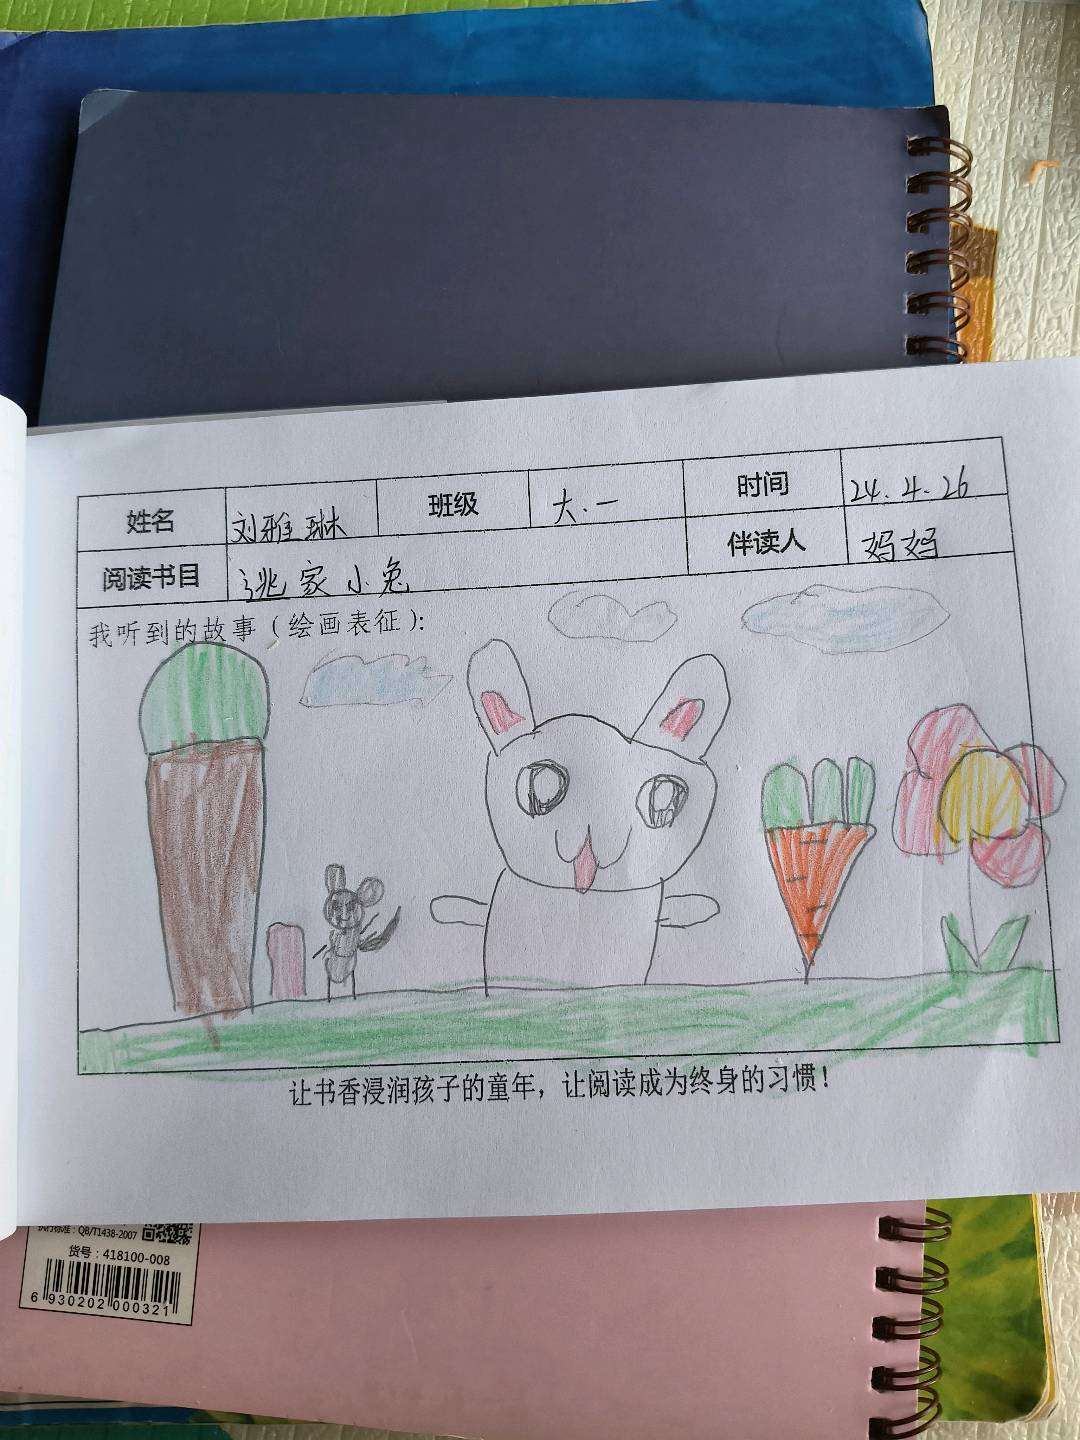 姓名 刘雅琳 班级 大.一 时间 24.4.26
阅读书目 逃家小兔 伴读人 妈妈
我听到的故事（绘画表征）：
让书香浸润孩子的童年，让阅读成为终身的习惯！
执行标准：QB/T1438-2007
货号：418100-008
6 930202 000321